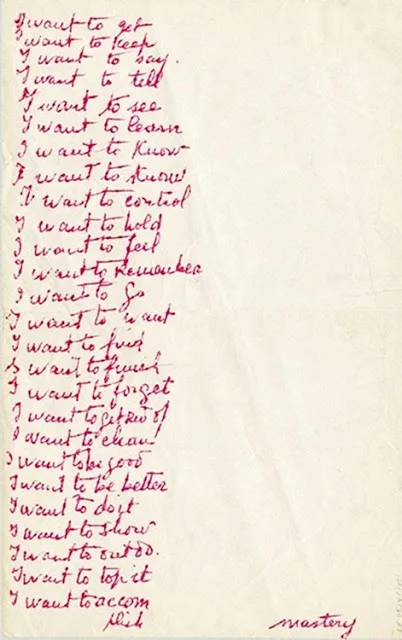 I want to get
I want to keep
I want to say.
I want to tell
I want to see
I want to learn
I want to Know
I want to
I want to control
I want to hold
I want to feel
I want to Remember
I want to Go
I want to want
I want to find
I want to finish
I want to forget
I want to get rid of
I want to clean
I want to be good
I want to be better
I want to do it
I want to show
I want to out do.
I want to top it
I want to accom
plish
mastery